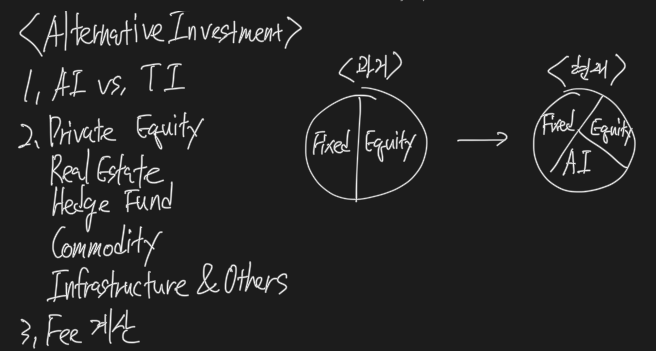 <Alternative Investment>
1, AI vs, TI
2, Private Equity
Real Estate
Hedge Fund
Commodity
Infrastructure & Others
3, Fee 계산
<과거>
Fixed Equity
<현재>
Fixed Equity
AI